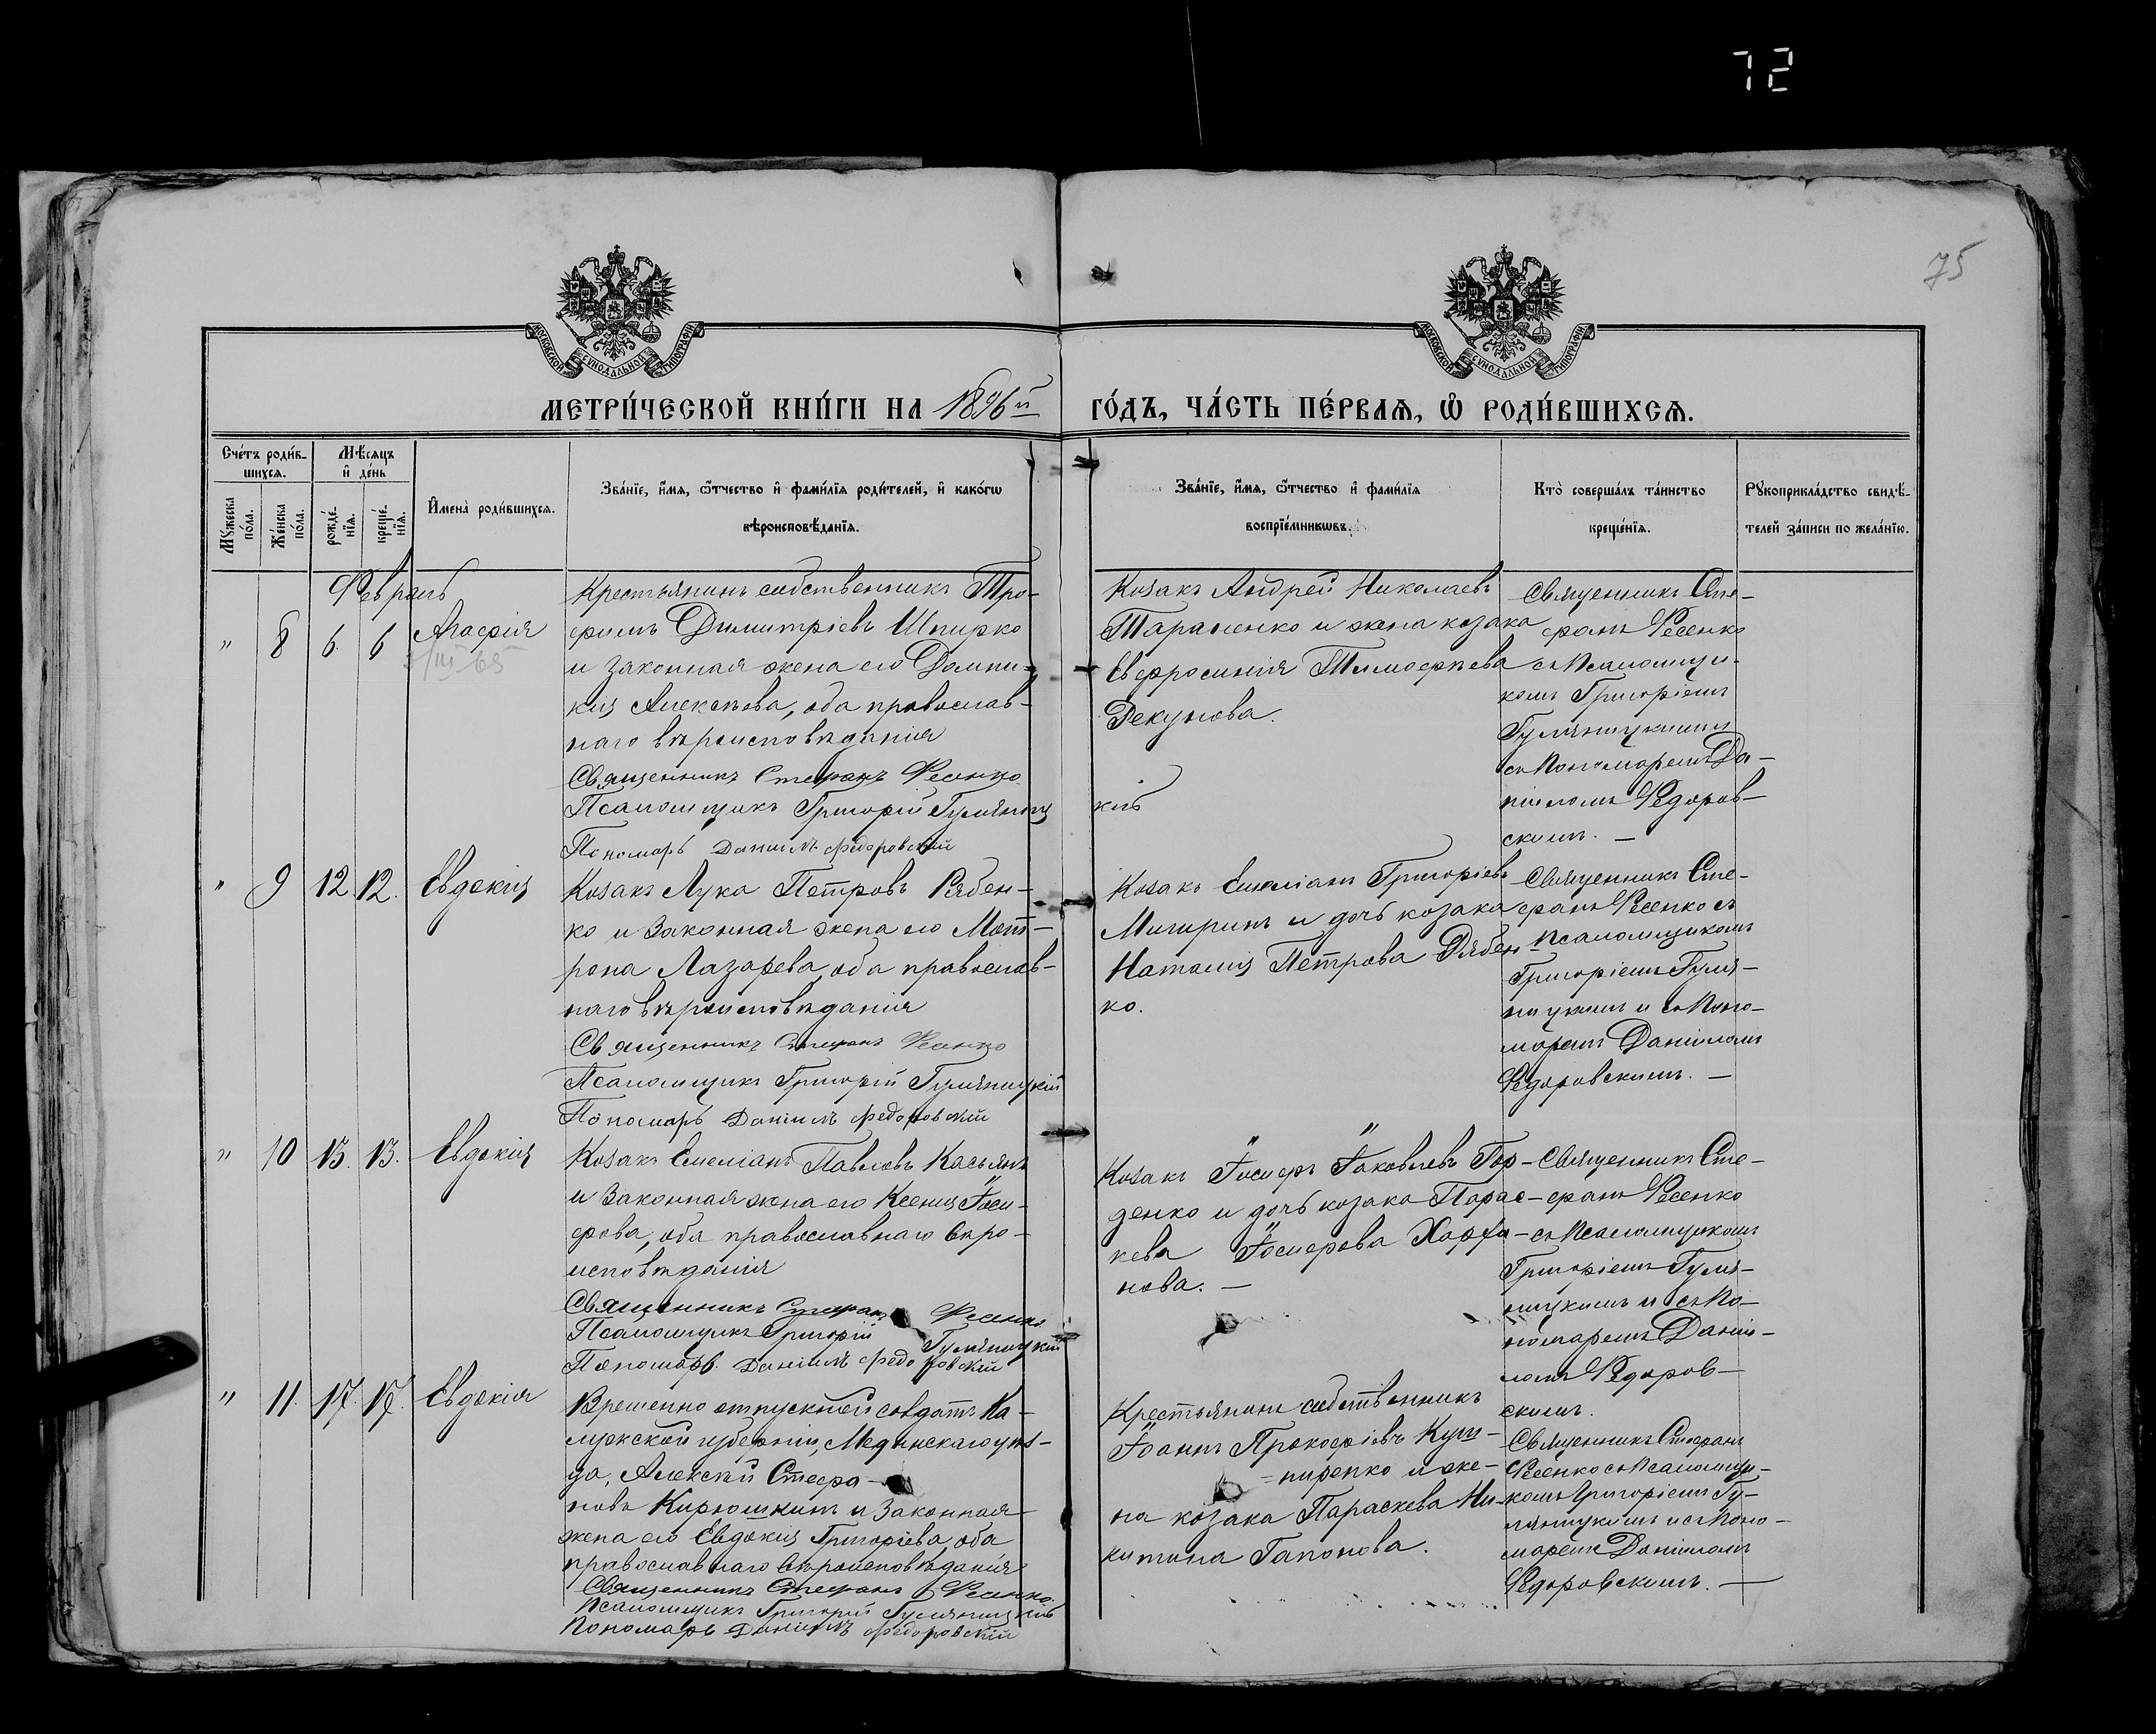 72
75
МОСКОВСКОЙ СУНОДАЛЬНОЙ ТИПОГРАФІИ
МОСКОВСКОЙ СУНОДАЛЬНОЙ ТИПОГРАФІИ
МЕТРИ́ЧЕСКОЙ КНИ́ГИ НА 1896й ГО́ДЪ, ЧА́СТЬ ПЕ́РВАѦ, Ѽ РОДИ́ВШИХСѦ.
Сче́тъ роди́в-
шихсѧ.
Мѣсѧцъ
и҆ де́нь
Мꙋжеска
по́ла.
Же́нска
по́ла.
рожде́-
нїѧ.
креще́-
нїѧ.
И҆мена̀ роди́вшихсѧ.
Зва́нїе, и҆́мѧ, ѻ҆́тчество и҆ фами́лїѧ роди́телей, и҆ како́гѡ
вѣроисповѣ́данїѧ.
Зва́нїе, и҆́мѧ, ѻ҆́тчество и҆ фами́лїѧ
воспрїе́мникѡвъ.
Кто̀ соверша́лъ та́инство
креще́нїѧ.
Рꙋкоприкла́дство свидѣ́-
телей за́писи по жела́нїю.
Февраль
" 8 6. 6 Агафія
Крестьянинъ собственникъ Тро-
фимъ Димитріевъ Шпирко
и законная жена его Домни-
кія Алексѣева, оба православ-
наго вѣроисповѣданія
Священникъ Стефанъ Фесенко
Псаломщикъ Григорій Гуляницкій
Пономарь Даніилъ Федоровскій
Козакъ Андрей Николаевъ
Тарасенко и жена козака
Евфросинія Тимофѣева
Рекунова.
Священникъ Сте-
фанъ Фесенко
съ Псаломщи-
комъ Григоріемъ
Гуляницкимъ
съ Пономаремъ Да-
ніиломъ Федоров-
скимъ. —
" 9 12. 12. Евдокія
Козакъ Лука Петровъ Рябен-
ко и Законная жена его Мот-
рона Лазарева, оба православ-
наго вѣроисповѣданія
Священникъ Стефанъ Фесенко
Псаломщикъ Григорій Гуляницкій
Пономарь Даніилъ Федоровскій
Козакъ Емеліанъ Григоріевъ
Мигиринъ и дочь козака
Наталія Петрова Рябен-
ко.
Священникъ Сте-
фанъ Фесенко съ
Псаломщикомъ
Григоріемъ Гуля-
ницкимъ и съ Поно-
маремъ Даніиломъ
Федоровскимъ. —
" 10 13. 13. Евдокія
Козакъ Емеліанъ Павловъ Касьянъ
и Законная жена его Ксенія Іоси-
фова, оба православнаго вѣро-
исповѣданія
Священникъ Стефанъ Фесенко
Псаломщикъ Григорій Гуляницкій
Пономарь Даніилъ Федоровскій
Козакъ Іосифъ Іаковлевъ Гор-
денко и дочь козака Парас-
кева Іосифова Харла-
нова. —
Священникъ Сте-
фанъ Фесенко
съ Псаломщикомъ
Григоріемъ Гуля-
ницкимъ и съ По-
номаремъ Даніи-
ломъ Федоров-
скимъ.
" 11. 17. 17. Евдокія
Временно отпускной солдатъ Ка-
лужской губерніи, Мединскаго уѣз-
да, Алексѣй Стефа-
новъ Кирюшкинъ и Законная
жена его Евдокія Григоріева, оба
православнаго вѣроисповѣданія
Священникъ Стефанъ Фесенко
Псаломщикъ Григорій Гуляницкій
Пономарь Даніилъ Федоровскій
Крестьянинъ собственникъ
Іоаннъ Прокофіевъ Куш-
ниренко и же-
на козака Параскева Ни-
китина Гапонова.
Священникъ Стефанъ
Фесенко съ Псаломщи-
комъ Григоріемъ Гу-
ляницкимъ и съ Поно-
маремъ Даніиломъ
Федоровскимъ. —